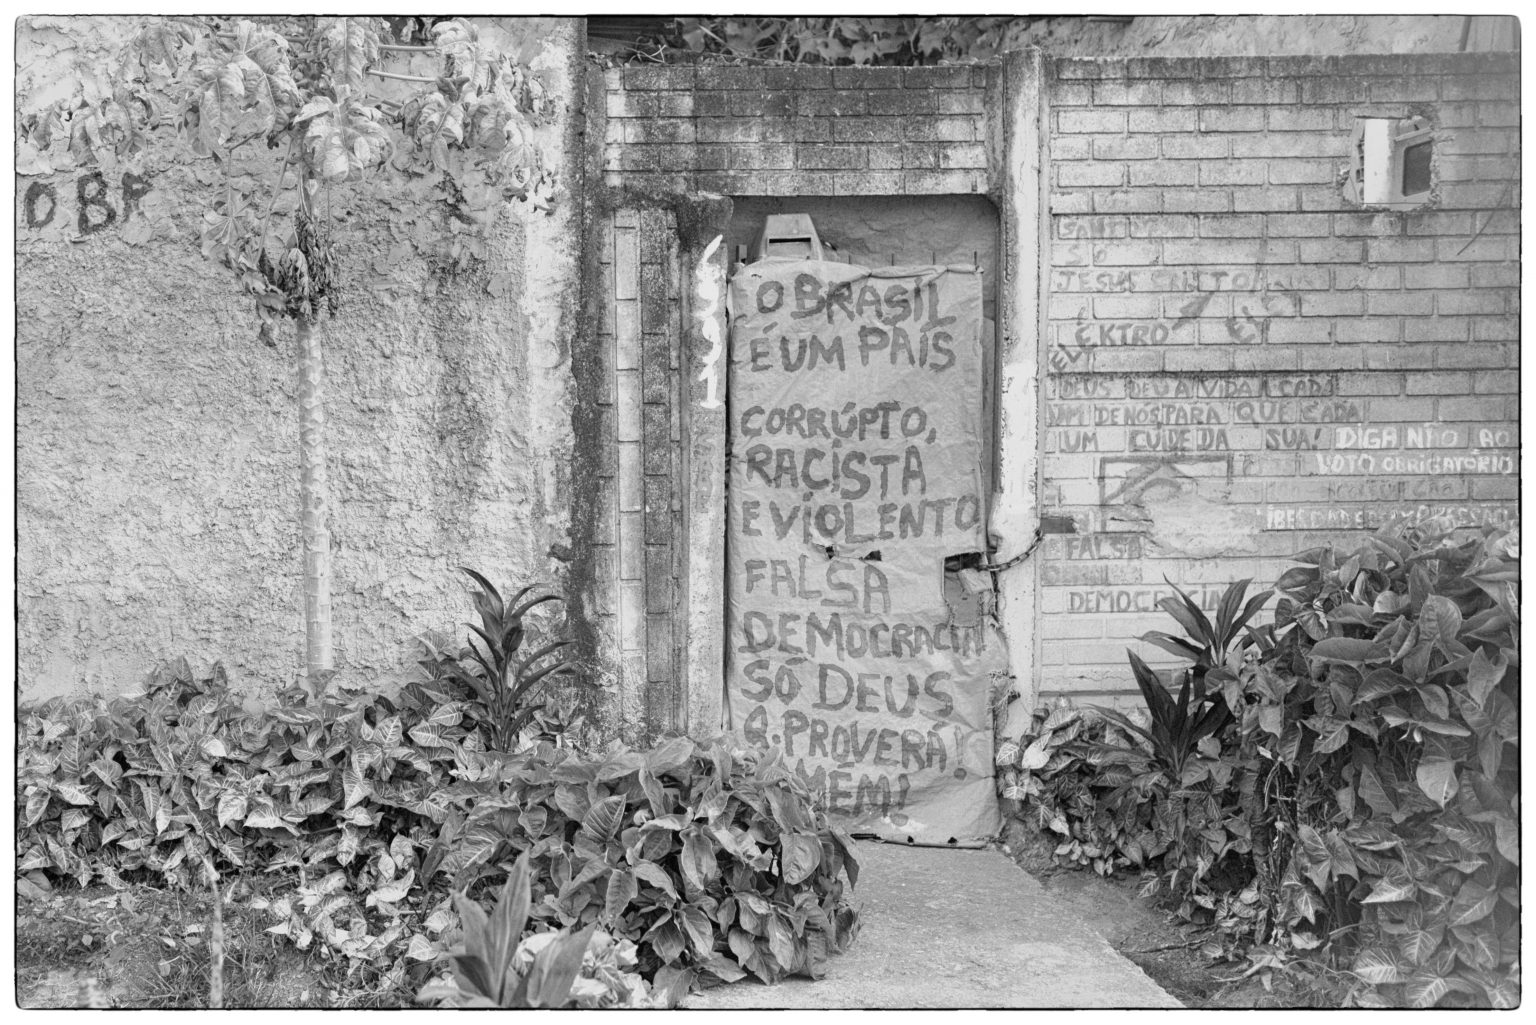 O BR
6991
O BRASIL
É UM PAÍS
CORRÚPTO,
RACISTA
E VIOLENTO
FALSA
DEMOCRACIA
SÓ DEUS
PROVERÁ!
MEM!
SÓ
JESUS CRISTO
ELÉKTRO
DEUS DEU A VIDA CADA
UM DE NÓS PARA QUE CADA
UM CUIDE DA SUA! DIGA NÃO AO
VOTO OBRIGATÓRIO
FALSA
DEMOCRACIA